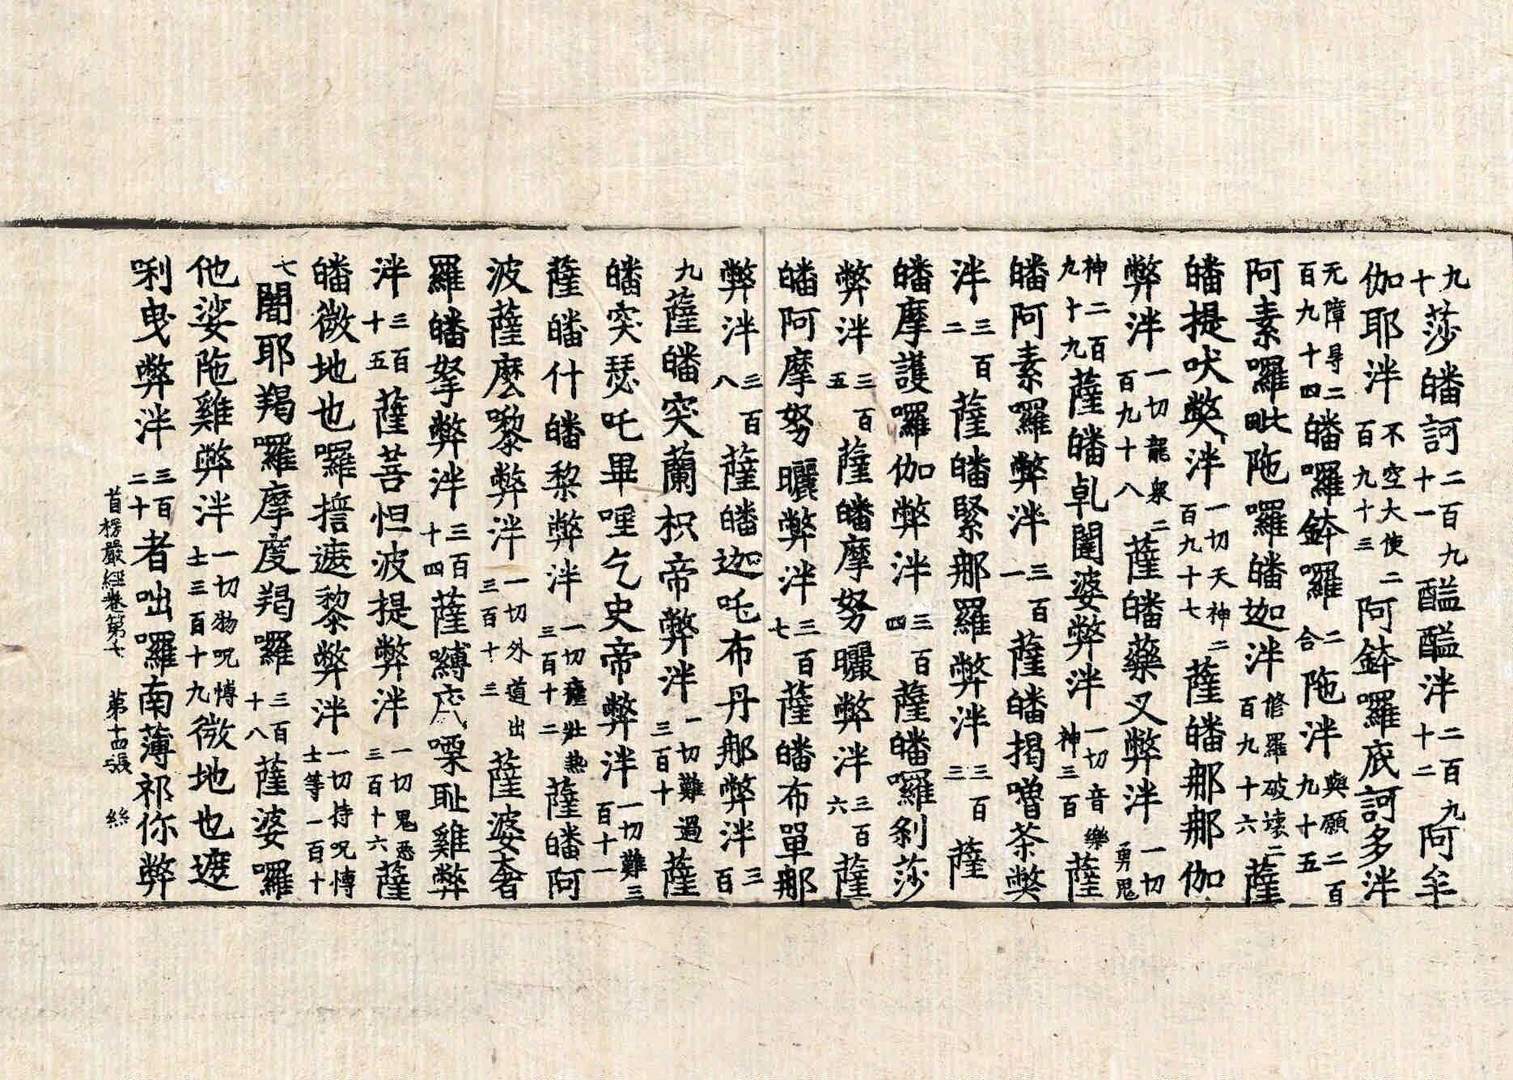 九十莎皤訶二百九十一醯醯泮二百九十二阿牟
伽耶泮不空大使二百九十三阿鉢囉底訶多泮
无障㝵二百九十四皤囉鉢囉二合陁泮與願二百九十五
阿素囉毗陁囉皤迦泮修羅破壞二百九十六薩
皤提吠弊泮一切天神二百九十七薩皤那那伽
弊泮一切龍衆二百九十八薩皤藥叉弊泮一切勇鬼
神二百九十九薩皤乹闥婆弊泮一切音樂神三百薩
皤阿素羅弊泮三百一薩皤揭嚕茶弊
泮三百二薩皤緊那羅弊泮三百三薩
皤摩護囉伽弊泮三百四薩皤囉剎莎
弊泮三百五薩皤摩努曬弊泮三百六薩
皤阿摩努曬弊泮三百七薩皤布單那
弊泮三百八薩皤迦吒布丹那弊泮三百
九薩皤突蘭枳帝弊泮一切難過三百十薩
皤突瑟吒畢㗚乞史帝弊泮一切難三百十一
薩皤什皤黎弊泮一切瘧壯熱三百十二薩皤阿
波薩麽嚟弊泮一切外道出三百十三薩婆奢
羅皤拏弊泮三百十四薩縛底㗚耻雞弊
泮三百十五薩菩怛波提弊泮一切鬼惡三百十六薩
皤微地也囉誓遮黎弊泮一切持呪博士等三百十
七闍耶羯囉摩度羯囉三百十八薩婆囉
他娑陁雞弊泮一切物呪博士三百十九微地也遮
唎曳弊泮三百二十者咄囉南薄祁你弊
首楞嚴經卷第七 第十四張 絲